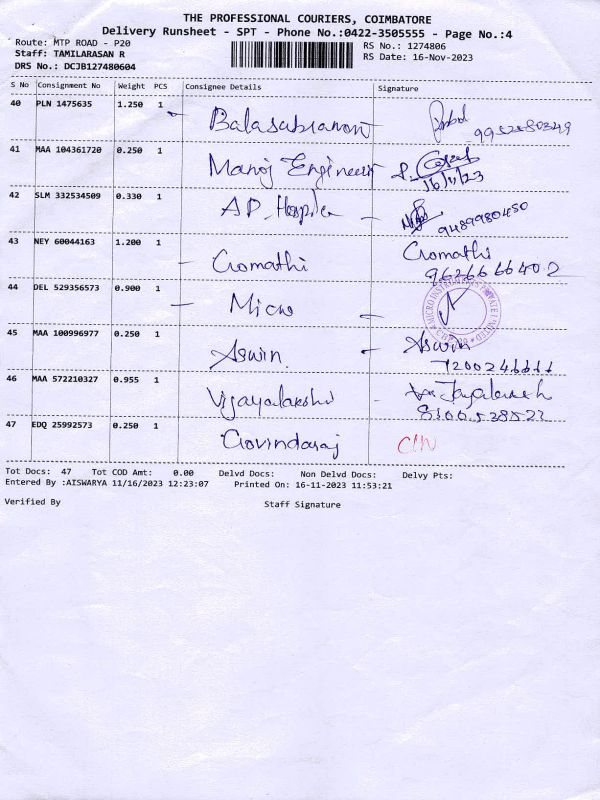 THE PROFESSIONAL COURIERS, COIMBATORE
Delivery Runsheet - SPT - Phone No.:0422-3505555 - Page No.:4
Route: MTP ROAD - P20 RS No.: 1274806
Staff: TAMILARASAN R RS Date: 16-Nov-2023
DRS No.: DCJB127480604
S No Consignment No Weight PCS Consignee Details Signature
40 PLN 1475635 1.250 1 Balasubramani
41 MAA 104361720 0.250 1 Manoj Engineer 16/11/23
42 SLM 332534509 0.330 1 AP. Hospital 9489980450
43 NEY 60044163 1.200 1 Gomathi Gomathi
9626666402
44 DEL 529356573 0.900 1 Micro
45 MAA 100996977 0.250 1 Aswin Aswin
46 MAA 572210327 0.955 1 Vijayalakshi
47 EDQ 25992573 0.250 1 Govindaraj
Tot Docs: 47 Tot COD Amt: 0.00 Delvd Docs: Non Delvd Docs: Delvy Pts:
Entered By :AISWARYA 11/16/2023 12:23:07 Printed On: 16-11-2023 11:53:21
Verified By Staff Signature